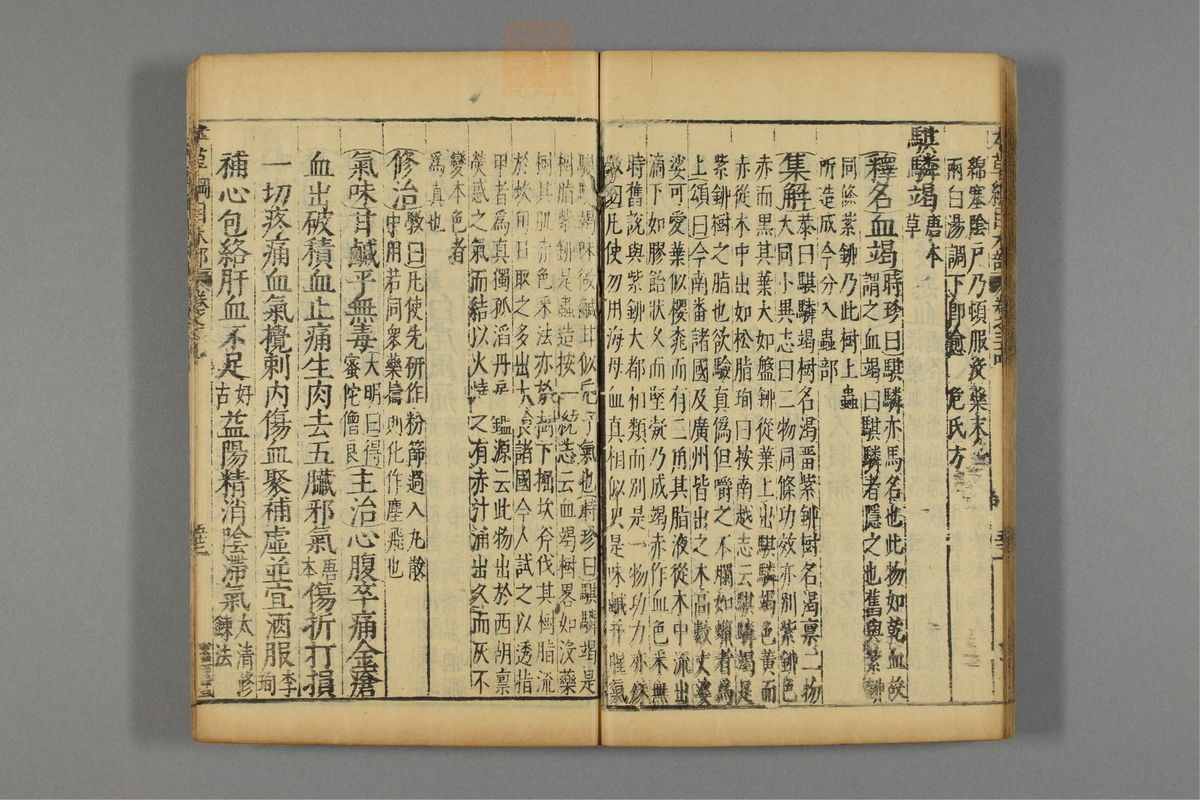 綿塞陰戶乃頓服沒藥末
兩白湯調下即愈 危氏方
騏驎竭唐本草
釋名血竭時珍曰騏驎亦馬名也此物如乾血故
謂之血竭曰騏驎者隱之也舊與紫鉚
同條紫鉚乃此樹上蟲
所造成今分入蟲部
集解恭曰騏驎竭樹名渴留紫鉚樹名渴稟二物
大同小異志曰二物同條功效亦別紫鉚色
赤而黑其葉大如盤鉚從葉上出騏驎竭色黃而
赤從木中出如松脂珣曰按南越志云騏驎竭是
紫鉚樹之脂也欲驗真僞但嚼之不爛如蠟者爲
上頌曰今南番諸國及廣州皆出之木高數丈婆
娑可愛葉似櫻桃而有三角其脂液從木中流出
滴下如膠飴狀久而堅凝乃成竭赤作血色采無
時舊說與紫鉚大都相類而別是一物功力亦殊
斅曰凡使勿用海母血真相似只是味鹹并腥氣
騏驎竭味微鹹甘似梔子氣也時珍曰騏驎竭是
樹脂紫鉚是蟲造按一統志云血竭樹畧如沒藥
樹其肌赤色采法亦於樹下掘坎斧伐其樹脂流
於坎旬日取之多出大食諸國今人試之以透指
甲者爲真獨孤滔丹房鑑源云此物出於西胡稟
熒惑之氣而結以火燒之有赤汁涌出久而灰不
變本色者
爲真也
修治斅曰凡使先研作粉篩過入丸散
中用若同衆藥擣則化作塵飛也
氣味甘鹹平無毒大明曰得蜜陀僧良主治心腹卒痛金瘡
血出破積血止痛生肉去五臟邪氣唐本傷折打損
一切疼痛血氣攪刺內傷血聚補虛並宜酒服李珣
補心包絡肝血不足好古益陽精消陰滯氣太清修鍊法